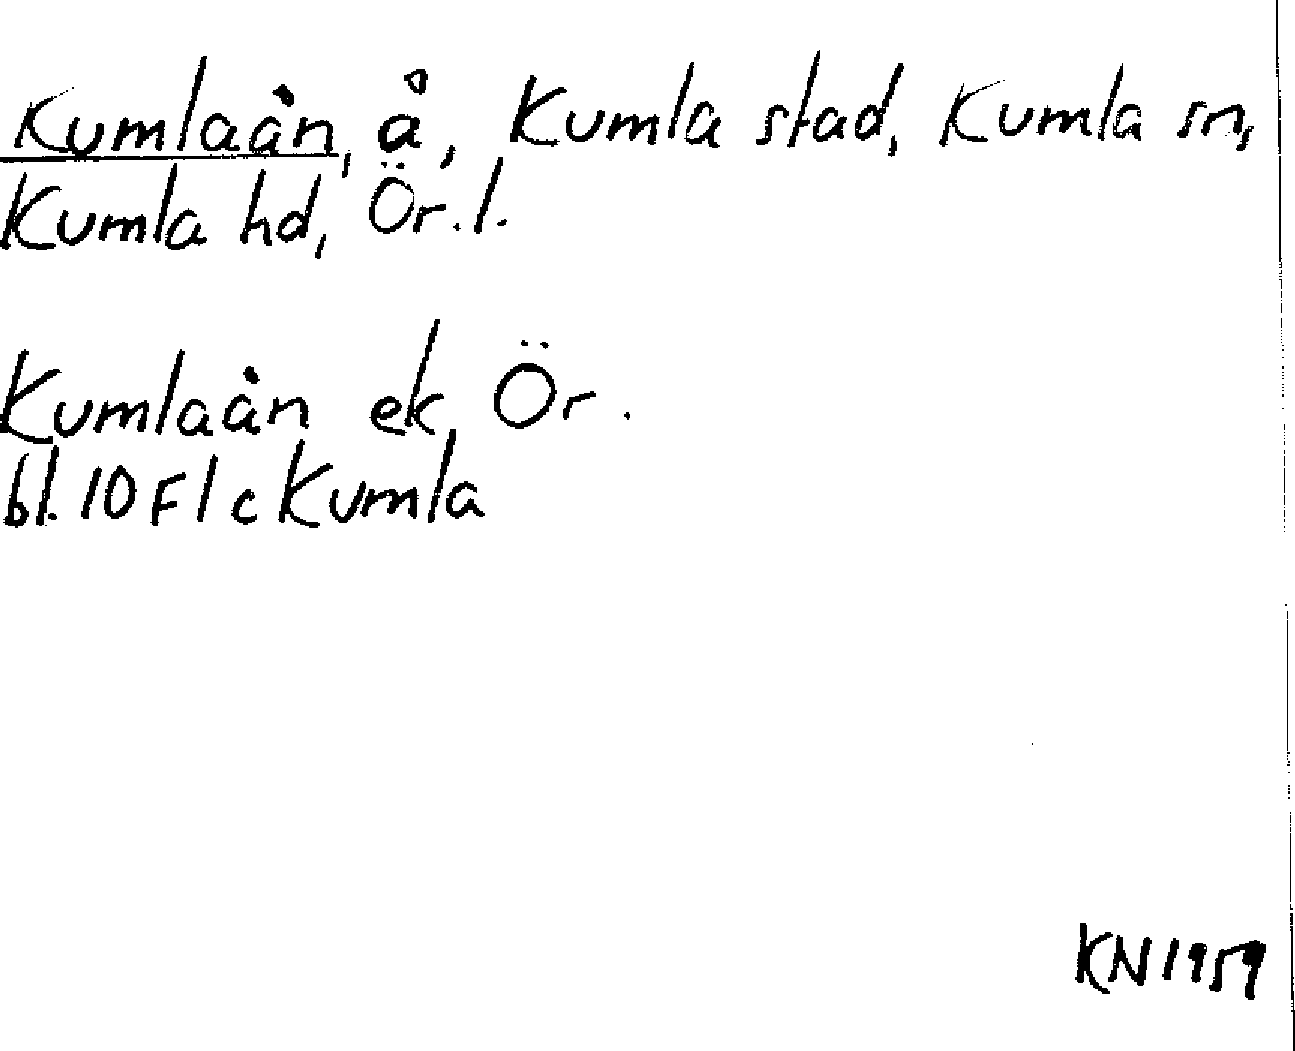 Kumlaån, å, Kumla stad, Kumla sn,
Kumla hd, Ör. l.
Kumlaån ek Ör.
bl. 10 F 1 c Kumla
KN 1959